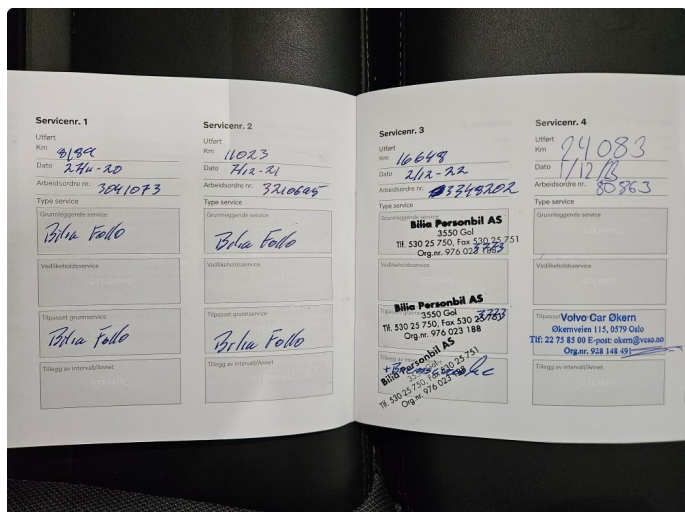 Servicenr. 1
Utført
Km 8189
Dato 27/11-20
Arbeidsordre nr. 3041073
Type service
Grunnleggende service
Bilia Follo
Vedlikeholdsservice
STEMPEL
Tilpasset grunnservice
Bilia Follo
Tillegg av intervall/Annet
STEMPEL
Servicenr. 2
Utført
Km 11023
Dato 7/12-21
Arbeidsordre nr. 3210695
Type service
Grunnleggende service
Bilia Follo
Vedlikeholdsservice
STEMPEL
Tilpasset grunnservice
Bilia Follo
Tillegg av intervall/Annet
STEMPEL
Servicenr. 3
Utført
Km 16648
Dato 2/12-22
Arbeidsordre nr. 3348202
Type service
Grunnleggende service
Bilia Personbil AS
3550 Gol
Tlf. 530 25 750, Fax 530 25 751
Org.nr. 976 023 188
Vedlikeholdsservice
Bilia Personbil AS
3550 Gol
Tlf. 530 25 750, Fax 530 25 751
Org.nr. 976 023 188
Bilia Personbil AS
3550 Gol
Tlf. 530 25 750, Fax 530 25 751
Org.nr. 976 023 188
Servicenr. 4
Utført
Km 24083
Dato 1/12/23
Arbeidsordre nr. 80863
Type service
Grunnleggende service
STEMPEL
Vedlikeholdsservice
STEMPEL
Volvo Car Økern
Økernveien 115, 0579 Oslo
Tlf: 22 75 85 00 E-post: okern@vcso.no
Org.nr. 928 148 491
Tillegg av intervall/Annet
STEMPEL